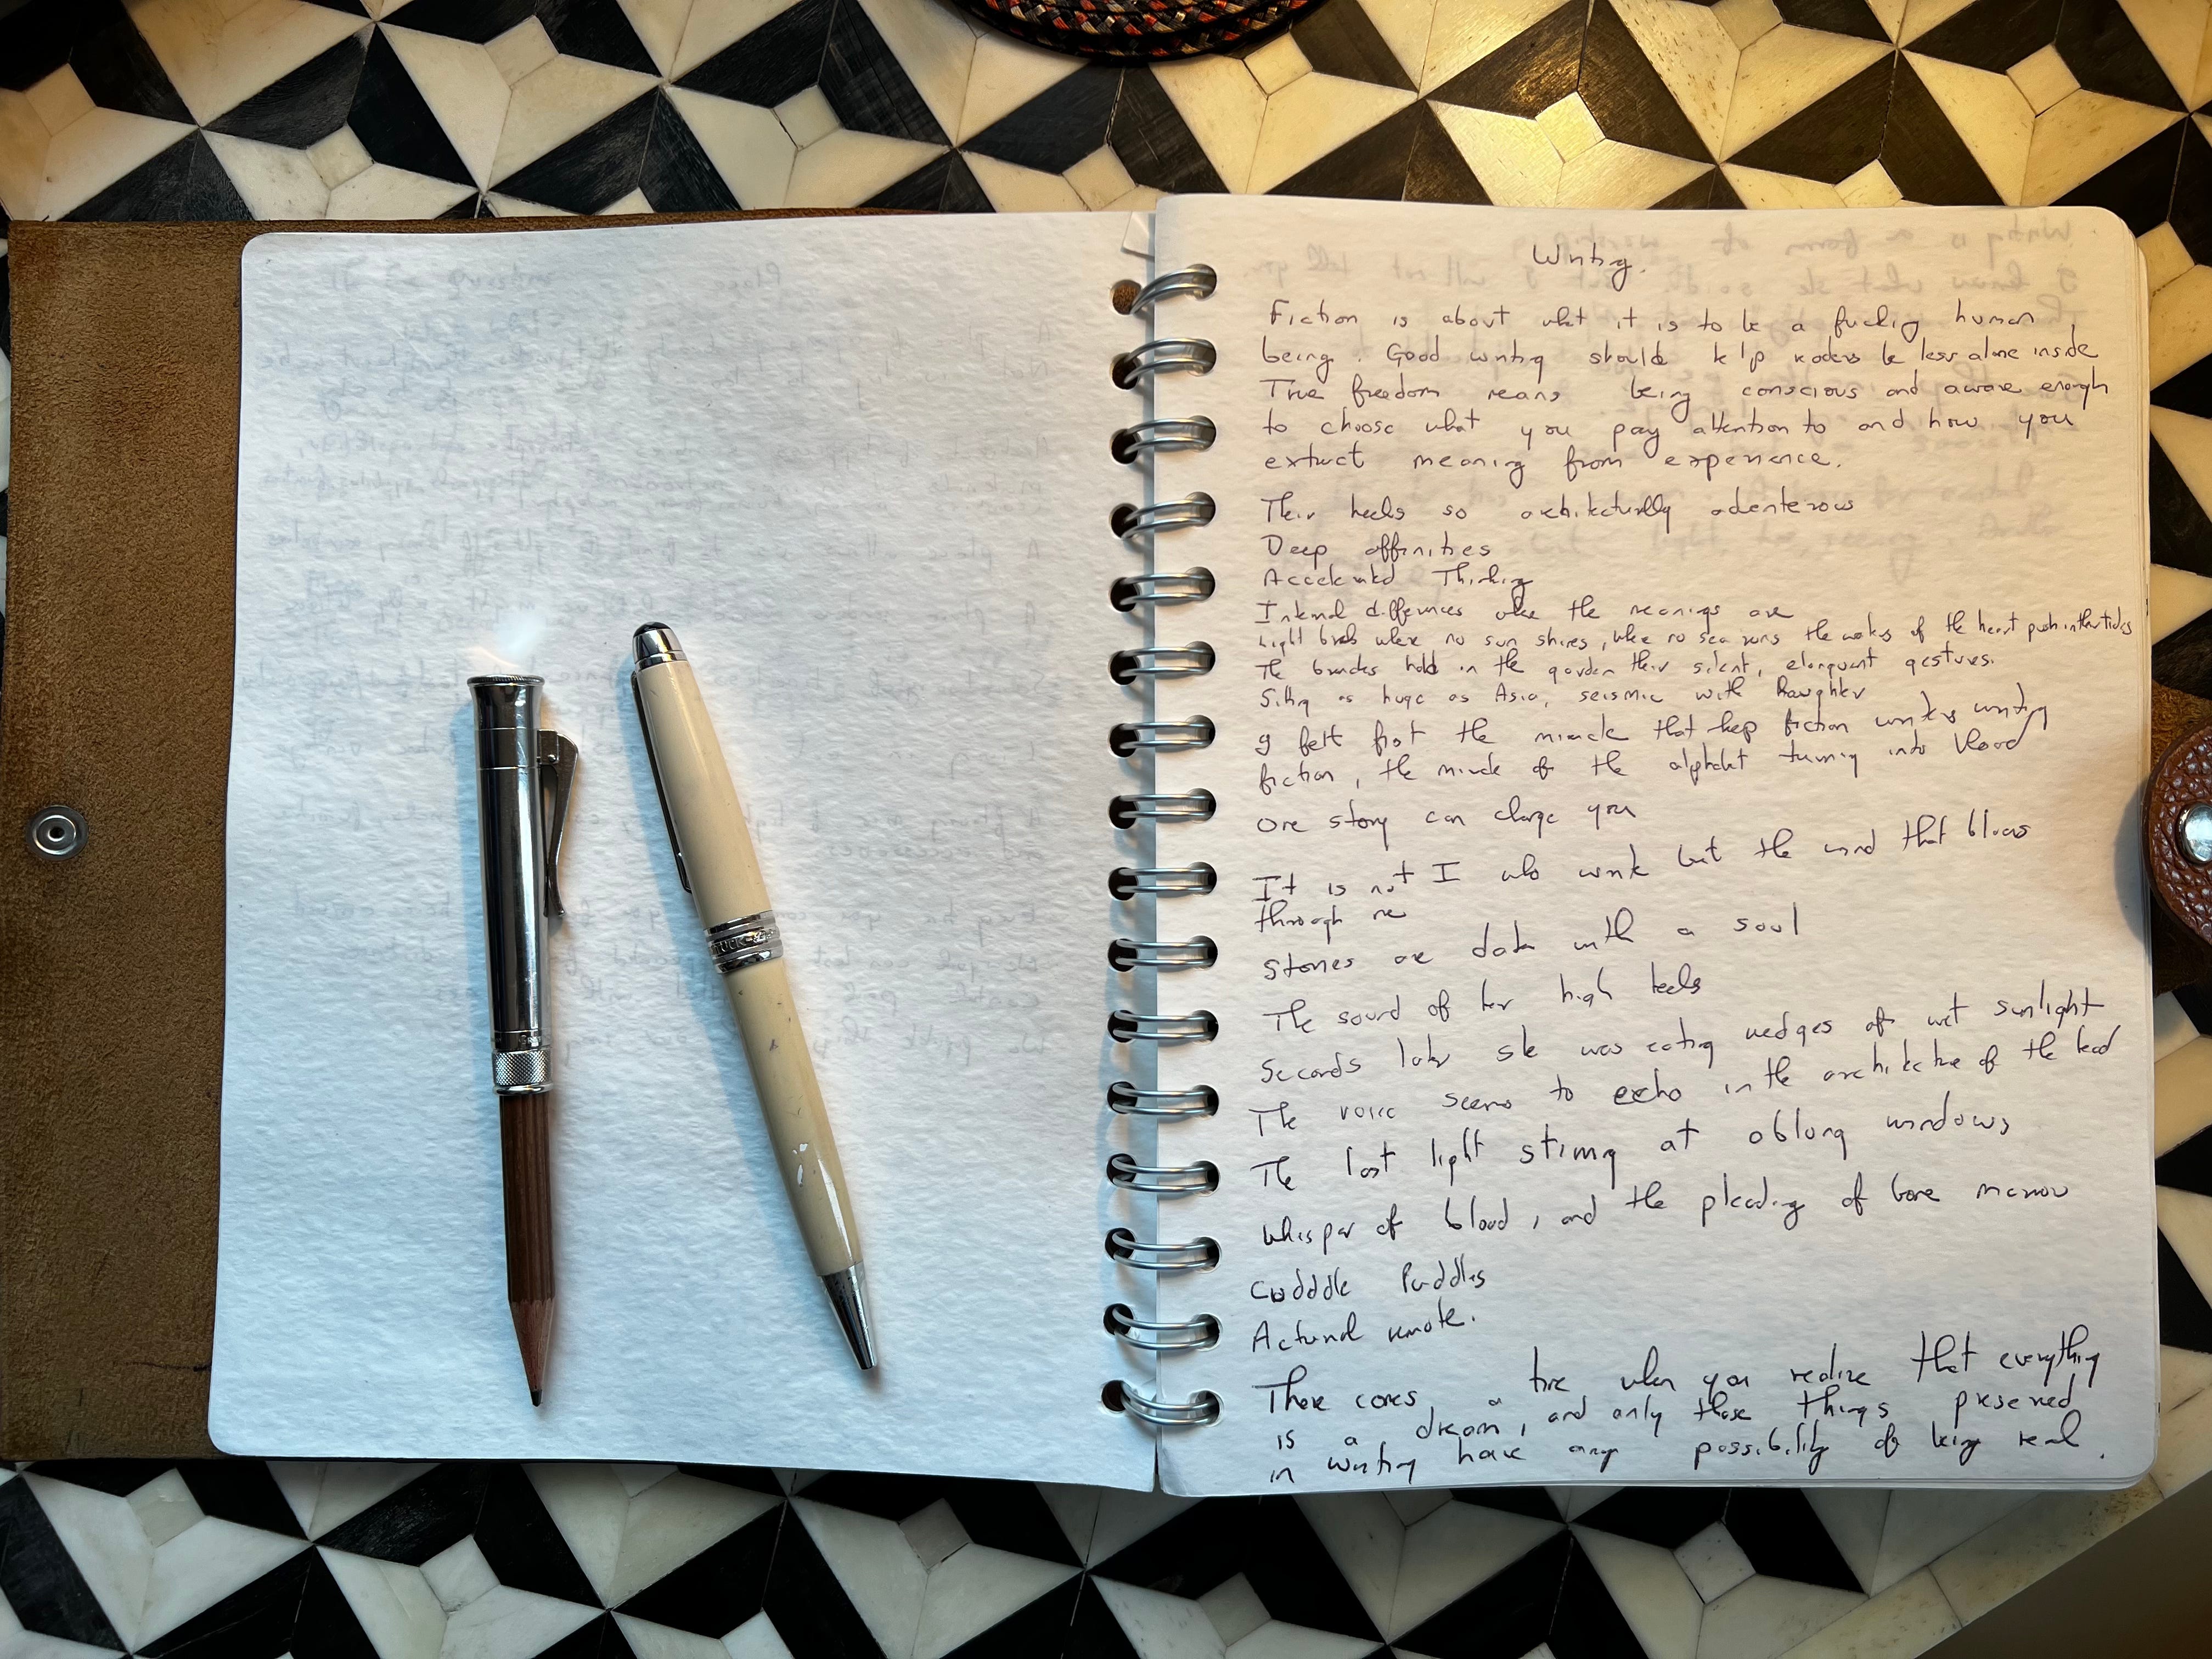 Writing.
Fiction is about what it is to be a fucking human
being. Good writing should help readers be less alone inside
True freedom means being conscious and aware enough
to choose what you pay attention to and how you
extract meaning from experience.
Their heels so architecturally
Deep affinities
Accelerated Thinking
Internal differences where the meanings are
Light breaks where no sun shines, where no sea runs the waters of the heart push in their tides
The branches hold in the garden their silent, eloquent gestures.
as huge as Asia, seismic with laughter
I felt first the miracle that keep fiction writers writing
fiction, the miracle of the alphabet turning into blood
One story can change you
It is not I who write but the wind that blows
through me
Stories are data with a soul
The sound of her high heels
Seconds later she was eating wedges of wet sunlight
The voice seems to echo in the architecture of the head
The last light at oblong windows
Whisper of blood, and the pleading of bone marrow
Cudddle Puddles
remote.
There comes a time when you realize that everything
is a dream, and only those things preserved
in writing have any possibility of being real.